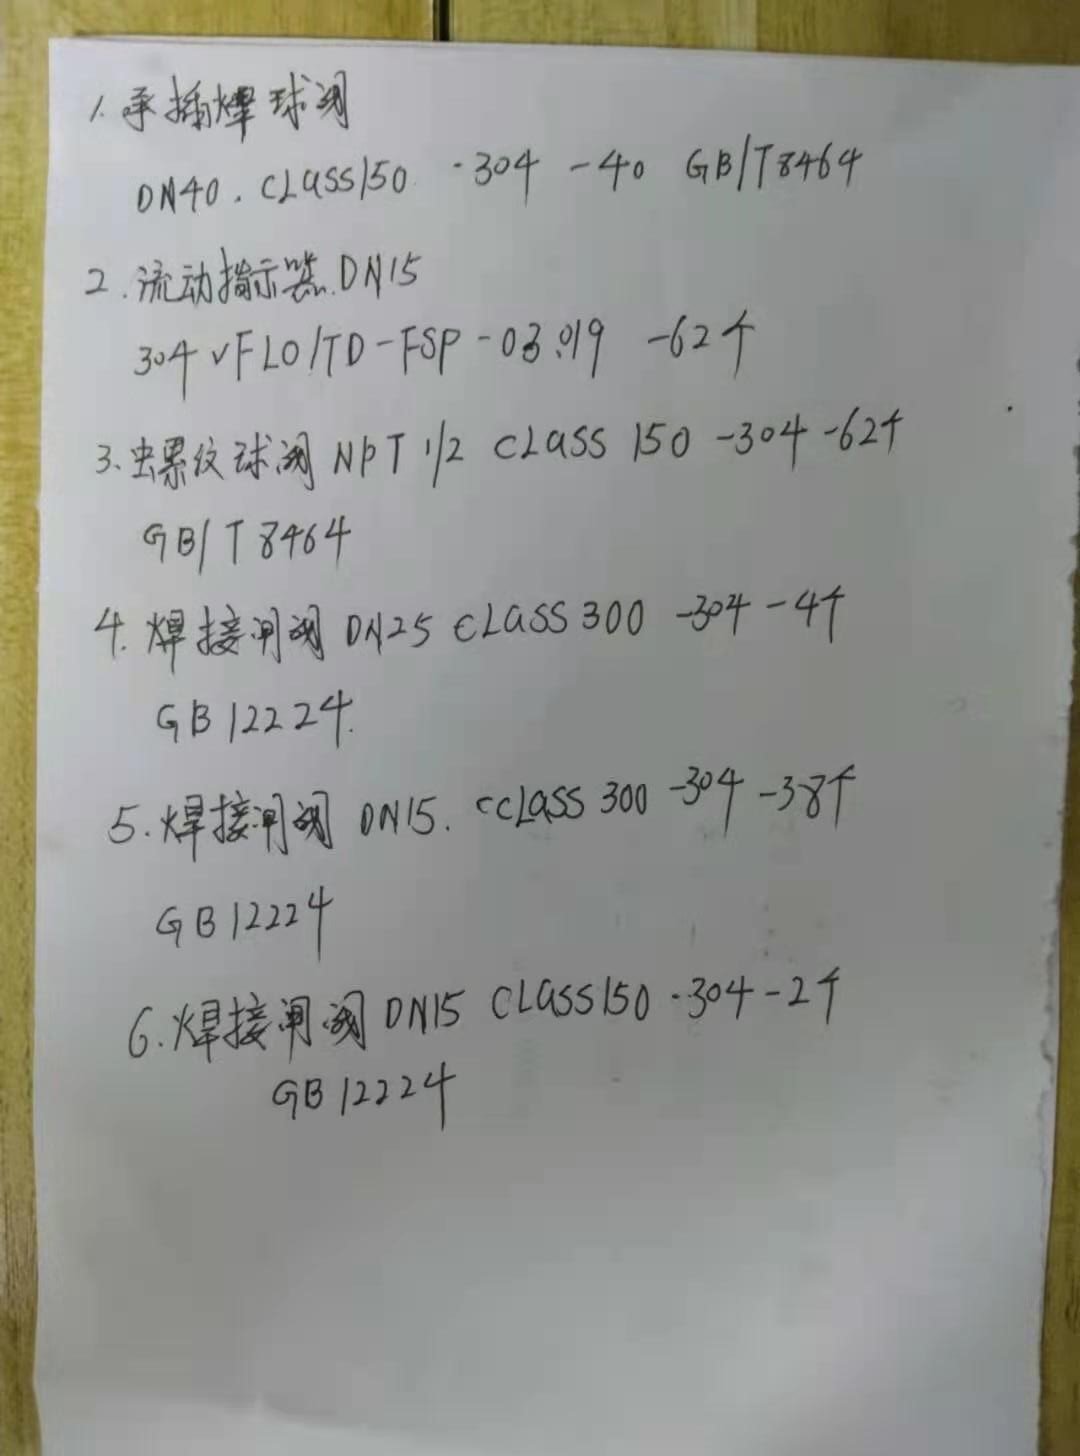 1. 承插焊球阀
DN40. CLASS150 -304 -40 GB/T8464
2. 流动指示器.DN15
304 VFLO/TD-FSP-03.019 -62个
3. 螺纹球阀 NPT 1/2 CLASS 150 -304 -62个
GB/T8464
4. 焊接闸阀 DN25 CLASS300 -304 -4个
GB12224.
5. 焊接闸阀 DN15. CLASS 300 -304 -38个
GB12224
6. 焊接闸阀 DN15 CLASS150 -304-2个
GB12224